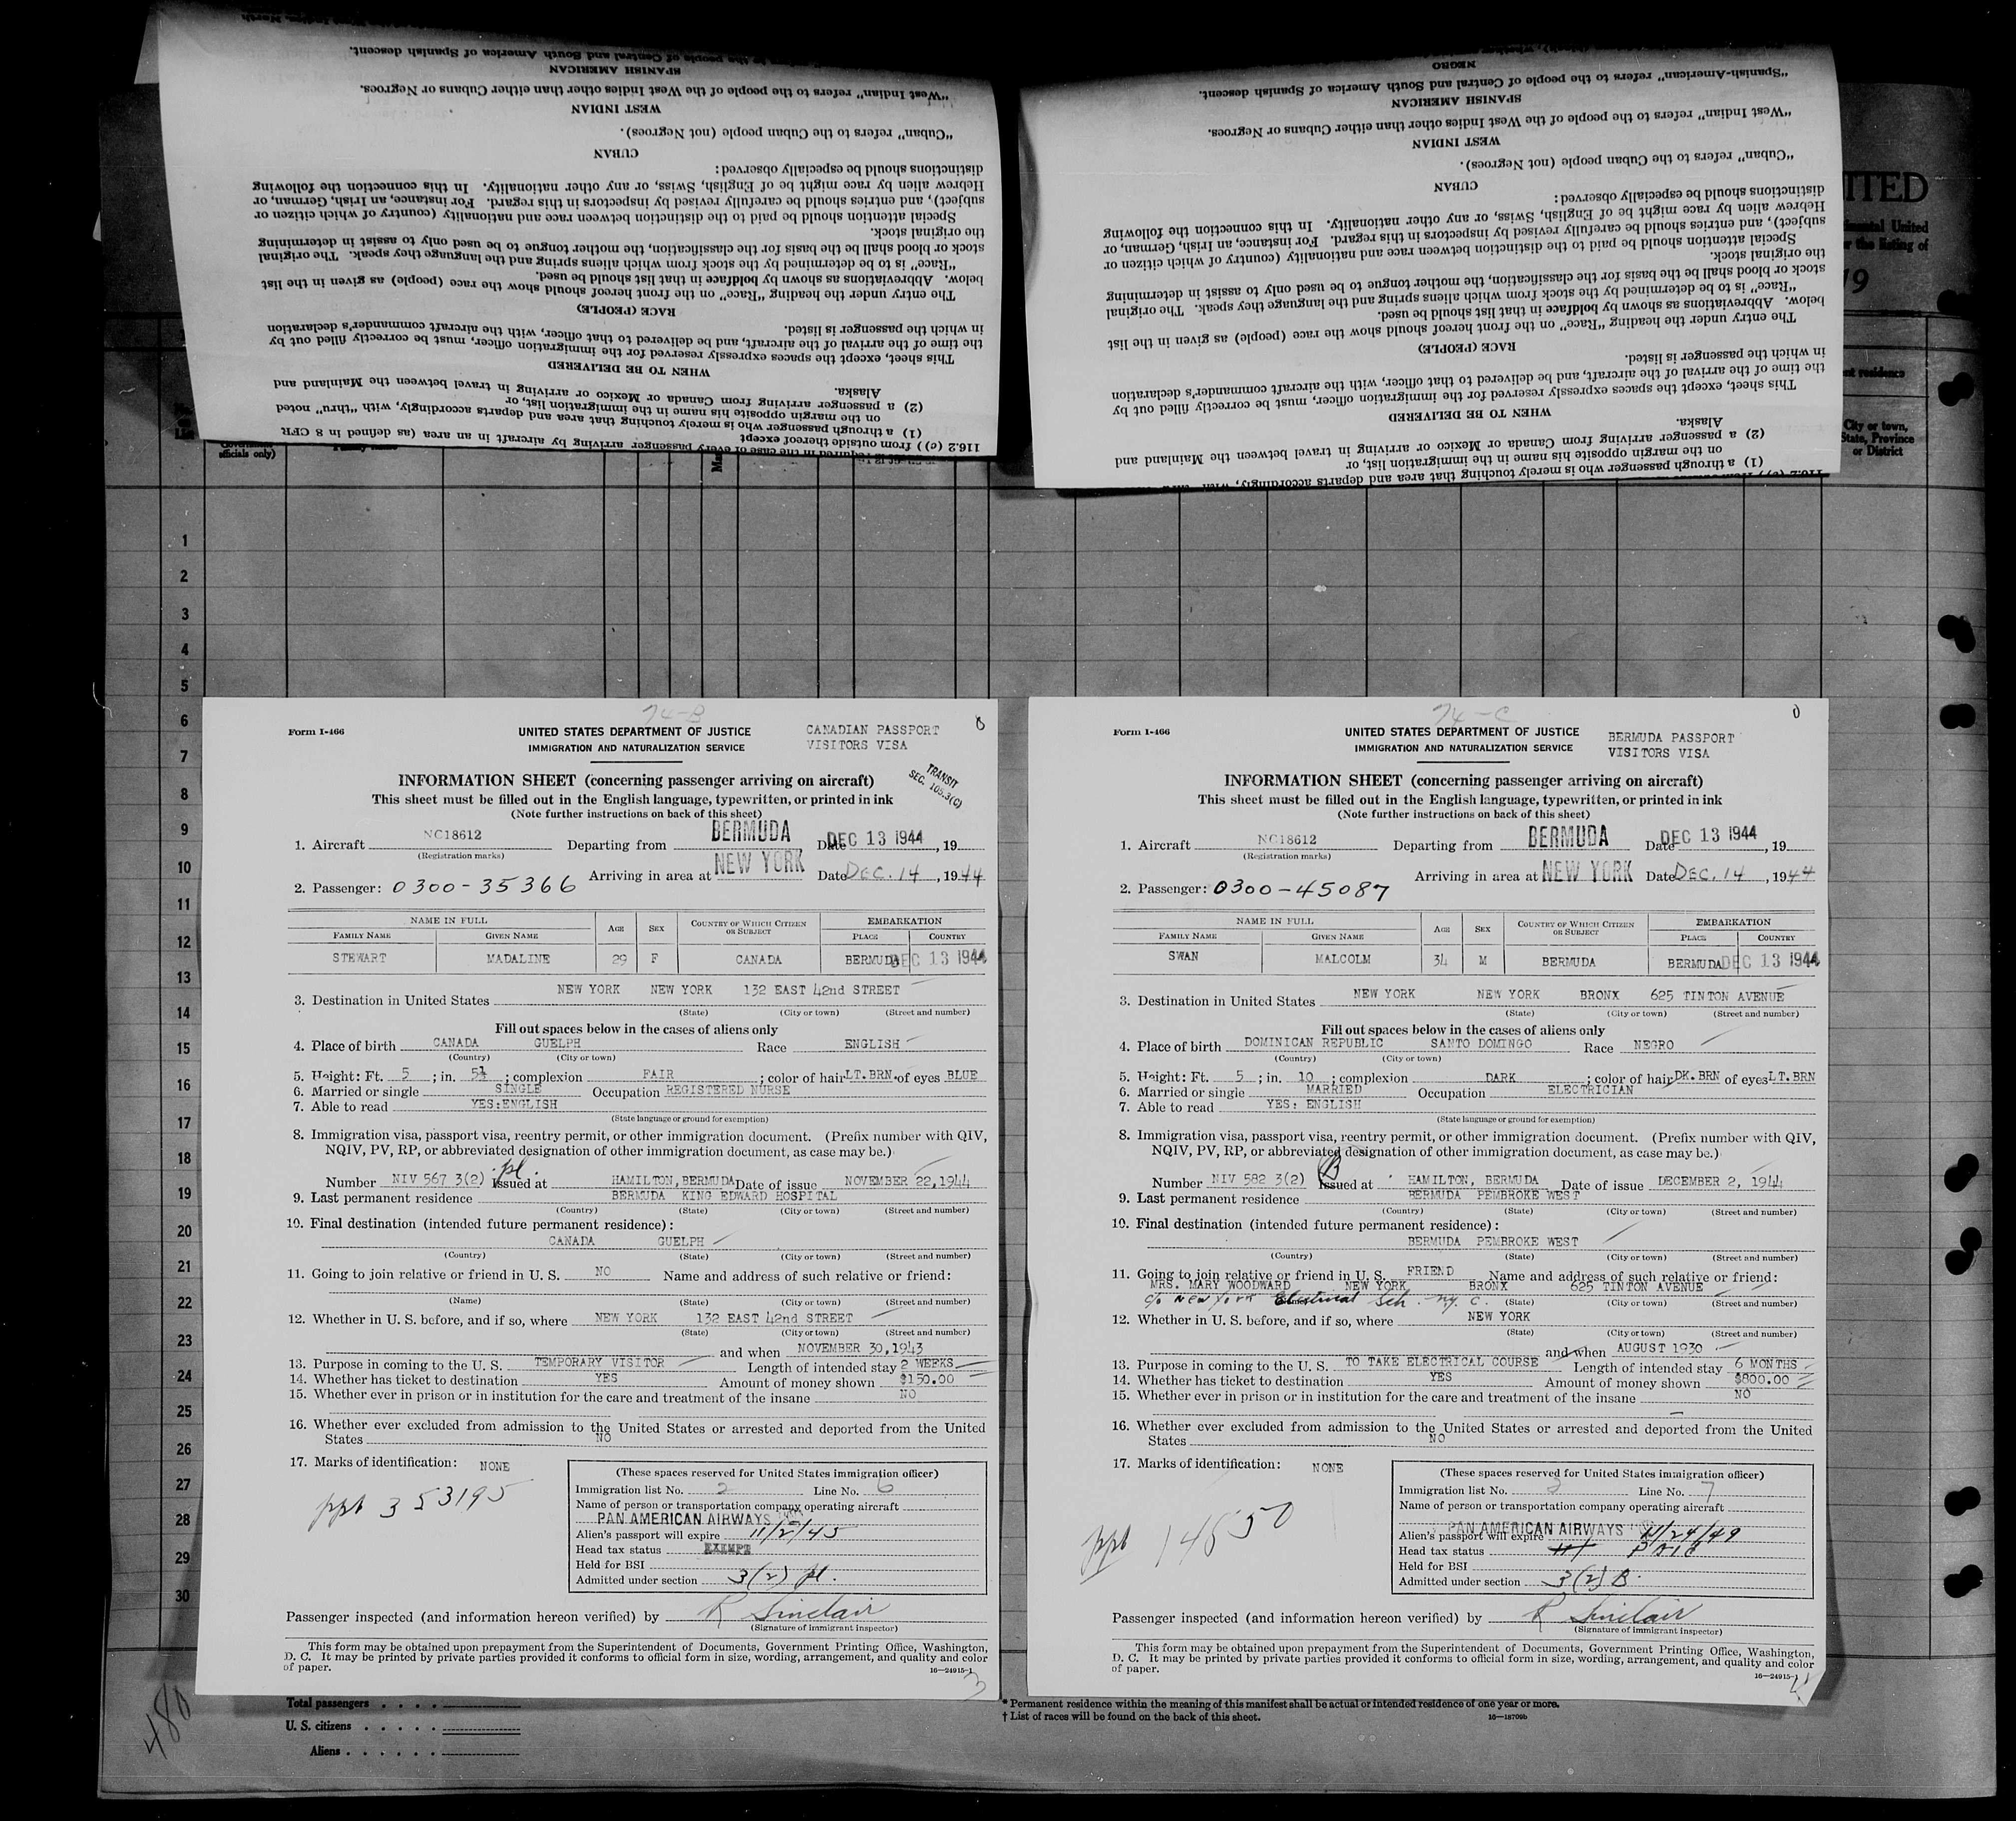 SPANISH AMERICAN
"West Indian" refers to the people of the West Indies other than either Cubans or Negroes.
WEST INDIAN
"Cuban" refers to the Cuban people (not Negroes).
CUBAN
distinctions should be especially observed:
Hebrew alien by race might be of English, Swiss, or any other nationality. In this connection the following
subject), and entries should be carefully revised by inspectors in this regard. For instance, an Irish, German, or
Special attention should be paid to the distinction between race and nationality (country of which citizen or
the original stock.
stock or blood shall be the basis for the classification, the mother tongue to be used only to assist in determining
"Race" is to be determined by the stock from which aliens spring and the language they speak. The original
below. Abbreviations as shown by boldface in that list should be used.
The entry under the heading "Race" on the front hereof should show the race (people) as given in the list
RACE (PEOPLE)
in which the passenger is listed.
the time of the arrival of the aircraft, and be delivered to that officer, with the aircraft commander's declaration
This sheet, except the spaces expressly reserved for the immigration officer, must be correctly filled out by
WHEN TO BE DELIVERED
Alaska.
(2) a passenger arriving from Canada or Mexico or arriving in travel between the Mainland and
on the margin opposite his name in the immigration list, or
(1) a through passenger who is merely touching that area and departs accordingly, with "thru" noted
116.2 (e)) from outside thereof except
required in the case of every passenger arriving by aircraft in an area (as defined in 8 CFR
NEGRO
"Spanish-American" refers to the people of Central and South America of Spanish descent.
SPANISH AMERICAN
"West Indian" refers to the people of the West Indies other than either Cubans or Negroes.
WEST INDIAN
"Cuban" refers to the Cuban people (not Negroes).
CUBAN
distinctions should be especially observed:
Hebrew alien by race might be of English, Swiss, or any other nationality. In this connection the following
subject), and entries should be carefully revised by inspectors in this regard. For instance, an Irish, German, or
Special attention should be paid to the distinction between race and nationality (country of which citizen or
the original stock.
stock or blood shall be the basis for the classification, the mother tongue to be used only to assist in determining
"Race" is to be determined by the stock from which aliens spring and the language they speak. The original
below. Abbreviations as shown by boldface in that list should be used.
The entry under the heading "Race" on the front hereof should show the race (people) as given in the list
RACE (PEOPLE)
in which the passenger is listed.
the time of the arrival of the aircraft, and be delivered to that officer, with the aircraft commander's declaration
This sheet, except the spaces expressly reserved for the immigration officer, must be correctly filled out by
WHEN TO BE DELIVERED
Alaska.
(2) a passenger arriving from Canada or Mexico or arriving in travel between the Mainland and
on the margin opposite his name in the immigration list, or
(1) a through passenger who is merely touching that area and departs accordingly, with
ITED
United
the listing of
19
residence
City or town,
State, Province
or District
officials only)
1
2
3
4
5
6
7
8
9
10
11
12
13
14
15
16
17
18
19
20
21
22
23
24
25
26
27
28
29
30
74-B
Form I-466
UNITED STATES DEPARTMENT OF JUSTICE
IMMIGRATION AND NATURALIZATION SERVICE
CANADIAN PASSPORT
VISITORS VISA
TRANSIT
SEC. 105.3(C)
INFORMATION SHEET (concerning passenger arriving on aircraft)
This sheet must be filled out in the English language, typewritten, or printed in ink
(Note further instructions on back of this sheet)
1. Aircraft NC18612 Departing from BERMUDA Date DEC 13 1944, 19
(Registration marks)
Arriving in area at NEW YORK Date DEC. 14, 1944
2. Passenger: 0300-35366
NAME IN FULL AGE SEX COUNTRY OF WHICH CITIZEN OR SUBJECT EMBARKATION
FAMILY NAME GIVEN NAME PLACE COUNTRY
STEWART MADALINE 29 F CANADA BERMUDA DEC 13 1944
3. Destination in United States NEW YORK NEW YORK 132 EAST 42nd STREET
(State) (City or town) (Street and number)
Fill out spaces below in the cases of aliens only
4. Place of birth CANADA GUELPH Race ENGLISH
(Country) (City or town)
5. Height: Ft. 5; in. 5½; complexion FAIR; color of hair LT.BRN. of eyes BLUE
6. Married or single SINGLE Occupation REGISTERED NURSE
7. Able to read YES:ENGLISH
(State language or ground for exemption)
8. Immigration visa, passport visa, reentry permit, or other immigration document. (Prefix number with QIV,
NQIV, PV, RP, or abbreviated designation of other immigration document, as case may be.)
pl.
Number NIV 567 3(2) Issued at HAMILTON,BERMUDA Date of issue NOVEMBER 22,1944
9. Last permanent residence BERMUDA KING EDWARD HOSPITAL
(Country) (State) (City or town) (Street and number)
10. Final destination (intended future permanent residence):
CANADA GUELPH
(Country) (State) (City or town) (Street and number)
11. Going to join relative or friend in U. S. NO Name and address of such relative or friend:
(Name) (State) (City or town) (Street and number)
12. Whether in U. S. before, and if so, where NEW YORK 132 EAST 42nd STREET
(State) (City or town) (Street and number)
and when NOVEMBER 30,1943
13. Purpose in coming to the U. S. TEMPORARY VISITOR Length of intended stay 2 WEEKS
14. Whether has ticket to destination YES Amount of money shown $150.00
15. Whether ever in prison or in institution for the care and treatment of the insane NO
16. Whether ever excluded from admission to the United States or arrested and deported from the United
States NO
17. Marks of identification: NONE
ppt 353195
(These spaces reserved for United States immigration officer)
Immigration list No. 2 Line No. 6
Name of person or transportation company operating aircraft
PAN AMERICAN AIRWAYS
Alien's passport will expire 11/2/45
Head tax status EXEMPT
Held for BSI
Admitted under section 3(2) pl.
Passenger inspected (and information hereon verified) by R Sinclair
(Signature of immigrant inspector)
This form may be obtained upon prepayment from the Superintendent of Documents, Government Printing Office, Washington,
D. C. It may be printed by private parties provided it conforms to official form in size, wording, arrangement, and quality and color
of paper.
16—24915-1
3
74-C
Form I-466
UNITED STATES DEPARTMENT OF JUSTICE
IMMIGRATION AND NATURALIZATION SERVICE
BERMUDA PASSPORT
VISITORS VISA
INFORMATION SHEET (concerning passenger arriving on aircraft)
This sheet must be filled out in the English language, typewritten, or printed in ink
(Note further instructions on back of this sheet)
1. Aircraft NC18612 Departing from BERMUDA Date DEC 13 1944, 19
(Registration marks)
Arriving in area at NEW YORK Date DEC. 14, 1944
2. Passenger: 0300-45087
NAME IN FULL AGE SEX COUNTRY OF WHICH CITIZEN OR SUBJECT EMBARKATION
FAMILY NAME GIVEN NAME PLACE COUNTRY
SWAN MALCOLM 34 M BERMUDA BERMUDA DEC 13 1944
3. Destination in United States NEW YORK NEW YORK BRONX 625 TINTON AVENUE
(State) (City or town) (Street and number)
Fill out spaces below in the cases of aliens only
4. Place of birth DOMINICAN REPUBLIC SANTO DOMINGO Race NEGRO
(Country) (City or town)
5. Height: Ft. 5; in. 10; complexion DARK; color of hair DK.BRN of eyes LT.BRN
6. Married or single MARRIED Occupation ELECTRICIAN
7. Able to read YES: ENGLISH
(State language or ground for exemption)
8. Immigration visa, passport visa, reentry permit, or other immigration document. (Prefix number with QIV,
NQIV, PV, RP, or abbreviated designation of other immigration document, as case may be.)
B
Number NIV 582 3(2) Issued at HAMILTON, BERMUDA Date of issue DECEMBER 2, 1944
9. Last permanent residence BERMUDA PEMBROKE WEST
(Country) (State) (City or town) (Street and number)
10. Final destination (intended future permanent residence):
BERMUDA PEMBROKE WEST
(Country) (State) (City or town) (Street and number)
11. Going to join relative or friend in U. S. FRIEND Name and address of such relative or friend:
MRS. MARY WOODWARD NEW YORK BRONX 625 TINTON AVENUE
c/o New York Electrical Sch. N.Y.C. (State) (City or town) (Street and number)
12. Whether in U. S. before, and if so, where NEW YORK
(State) (City or town) (Street and number)
and when AUGUST 1930
13. Purpose in coming to the U. S. TO TAKE ELECTRICAL COURSE Length of intended stay 6 MONTHS
14. Whether has ticket to destination YES Amount of money shown $800.00
15. Whether ever in prison or in institution for the care and treatment of the insane NO
16. Whether ever excluded from admission to the United States or arrested and deported from the United
States NO
17. Marks of identification: NONE
ppt 14850
(These spaces reserved for United States immigration officer)
Immigration list No. 2 Line No. 7
Name of person or transportation company operating aircraft
PAN AMERICAN AIRWAYS
Alien's passport will expire 11/24/49
Head tax status Paid
Held for BSI
Admitted under section 3(2) B.
Passenger inspected (and information hereon verified) by R Sinclair
(Signature of immigrant inspector)
This form may be obtained upon prepayment from the Superintendent of Documents, Government Printing Office, Washington,
D. C. It may be printed by private parties provided it conforms to official form in size, wording, arrangement, and quality and color
of paper.
16—24915-1
480
Total passengers
U. S. citizens
Aliens
* Permanent residence within the meaning of this manifest shall be actual or intended residence of one year or more.
† List of races will be found on the back of this sheet.
16—18709b